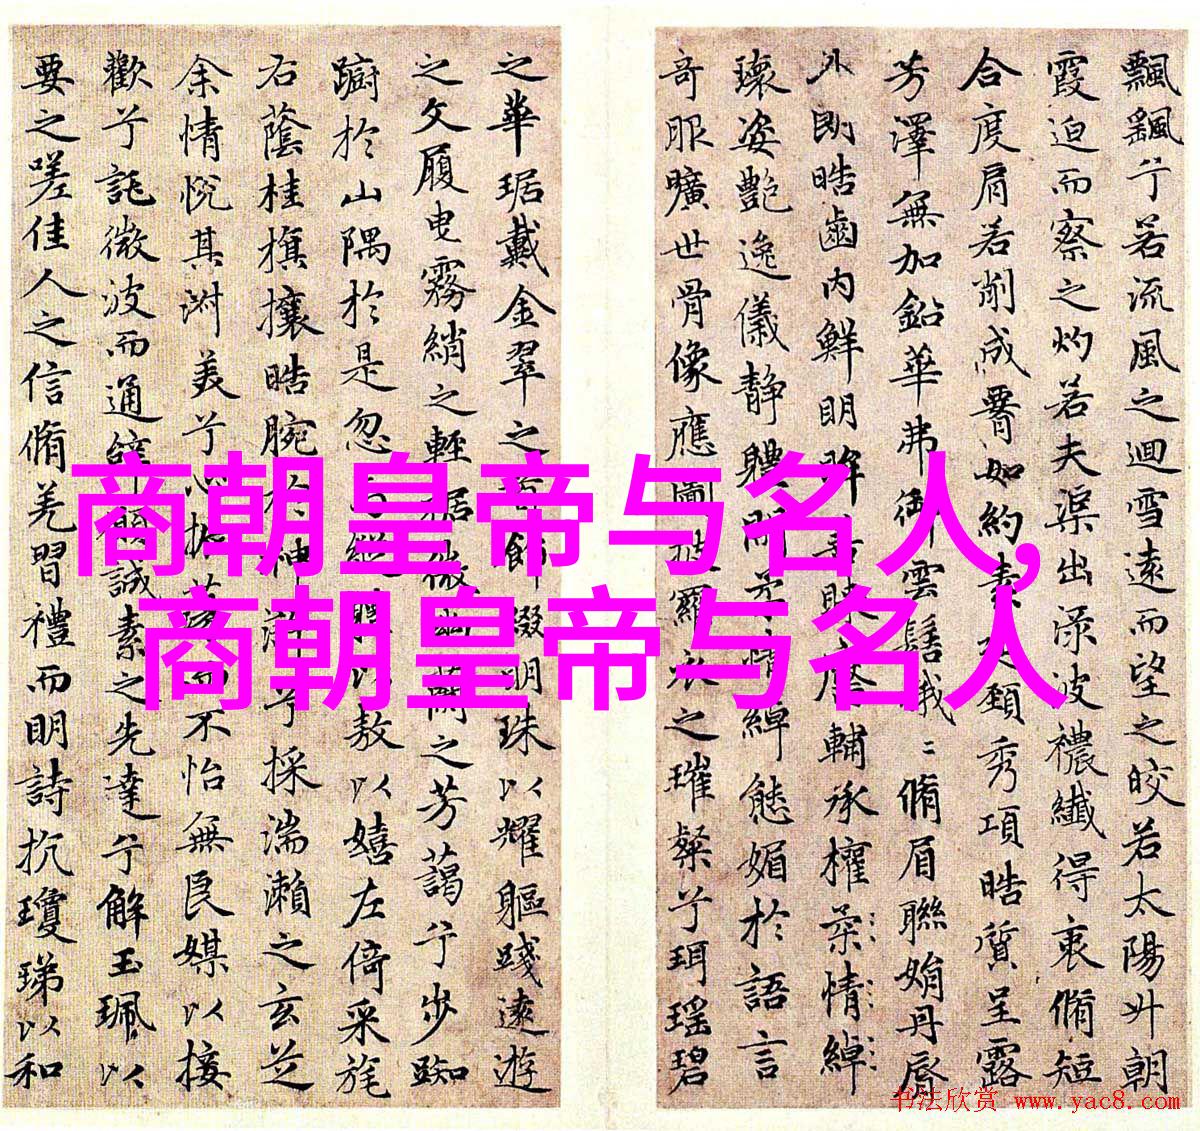 飄颻兮若流風之迴雪遠而望之皎若太陽升朝
霞迫而察之灼若夫渠出淥波襛纖得衷脩短
合度肩若削成署如約素延頸秀項皓質呈露
芳澤無加鉛華弗御雲髻峨〻脩眉聯娟丹脣
外朗皓齒内鮮明眸善睞靨輔承權柔情綽
瓌姿艷逸儀静體閑柔情綽態媚於語言
奇服曠世骨像應圖披羅衣之璀粲兮珥瑶碧
之華琚戴金翠之首飾綴明珠以耀軀踐遠遊
之文履曳霧綃之輕裾微幽蘭之芳藹兮步踟
蹰於山隅於是忽焉縱體以敖以嬉左倚采旄
右蔭桂旗攘皓腕於神滸兮採湍瀨之玄芝
余情悅其淑美兮心振蕩而不怡無良媒以接
歡兮託微波而通辭願誠素之先達兮解玉珮以
要之嗟佳人之信脩羌習禮而明詩抗瓊珶以和
商朝皇帝与名人,
商朝皇帝与名人
书法欣赏 www.yac8.com